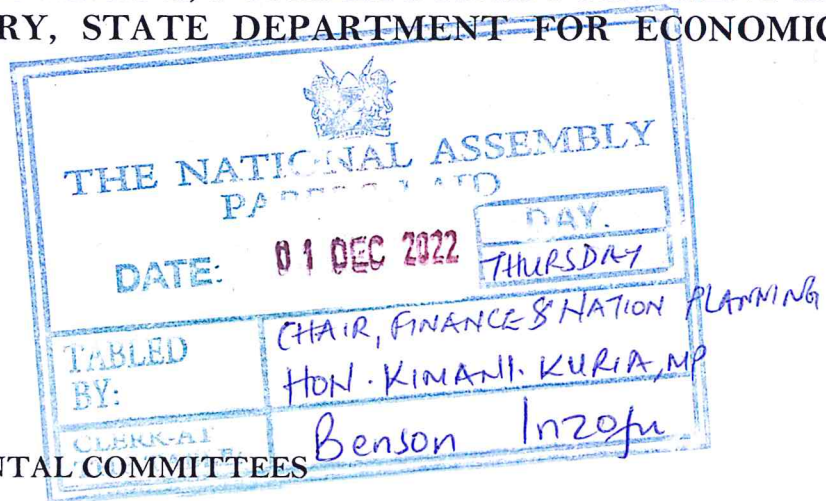 RY, STATE DEPARTMENT FOR ECONOMIC
THE NATIONAL ASSEMBLY
PAPERS LAID
DATE: 01 DEC 2022
DAY.
THURSDAY
TABLED
BY:
CHAIR, FINANCE & NATION PLANNING
HON. KIMANI. KURIA, MP
CLERK-AT
Benson Inzofu
NTAL COMMITTEES